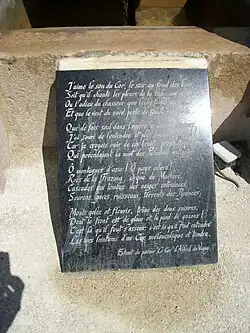 J'aime le son du Cor, le soir, au fond des bois,
Soit qu'il chante les pleurs de la biche aux abois,
Ou l'adieu du chasseur que l'écho faible accueille
Et que le vent du nord porte de feuille en feuille.
Que de fois seul dans l'ombre à minuit demeuré
J'ai souri de l'entendre, et plus souvent pleuré !
Car je croyais ouïr de ces bruits prophétiques
Qui précédaient la mort des Paladins antiques.
O montagnes d'azur ! O pays adoré !
Rocs de la Frazona, cirque du Marboré,
Cascades qui tombez des neiges entraînées,
Sources, gaves, ruisseaux, torrents des Pyrénées,
Monts gelés et fleuris, trône des deux saisons,
Dont le front est de glace et le pied de gazons !
C'est là qu'il faut s'asseoir, c'est là qu'il faut entendre
Les airs lointains d'un Cor mélancolique et tendre.
Extrait du poème Le Cor d'Alfred de Vigny